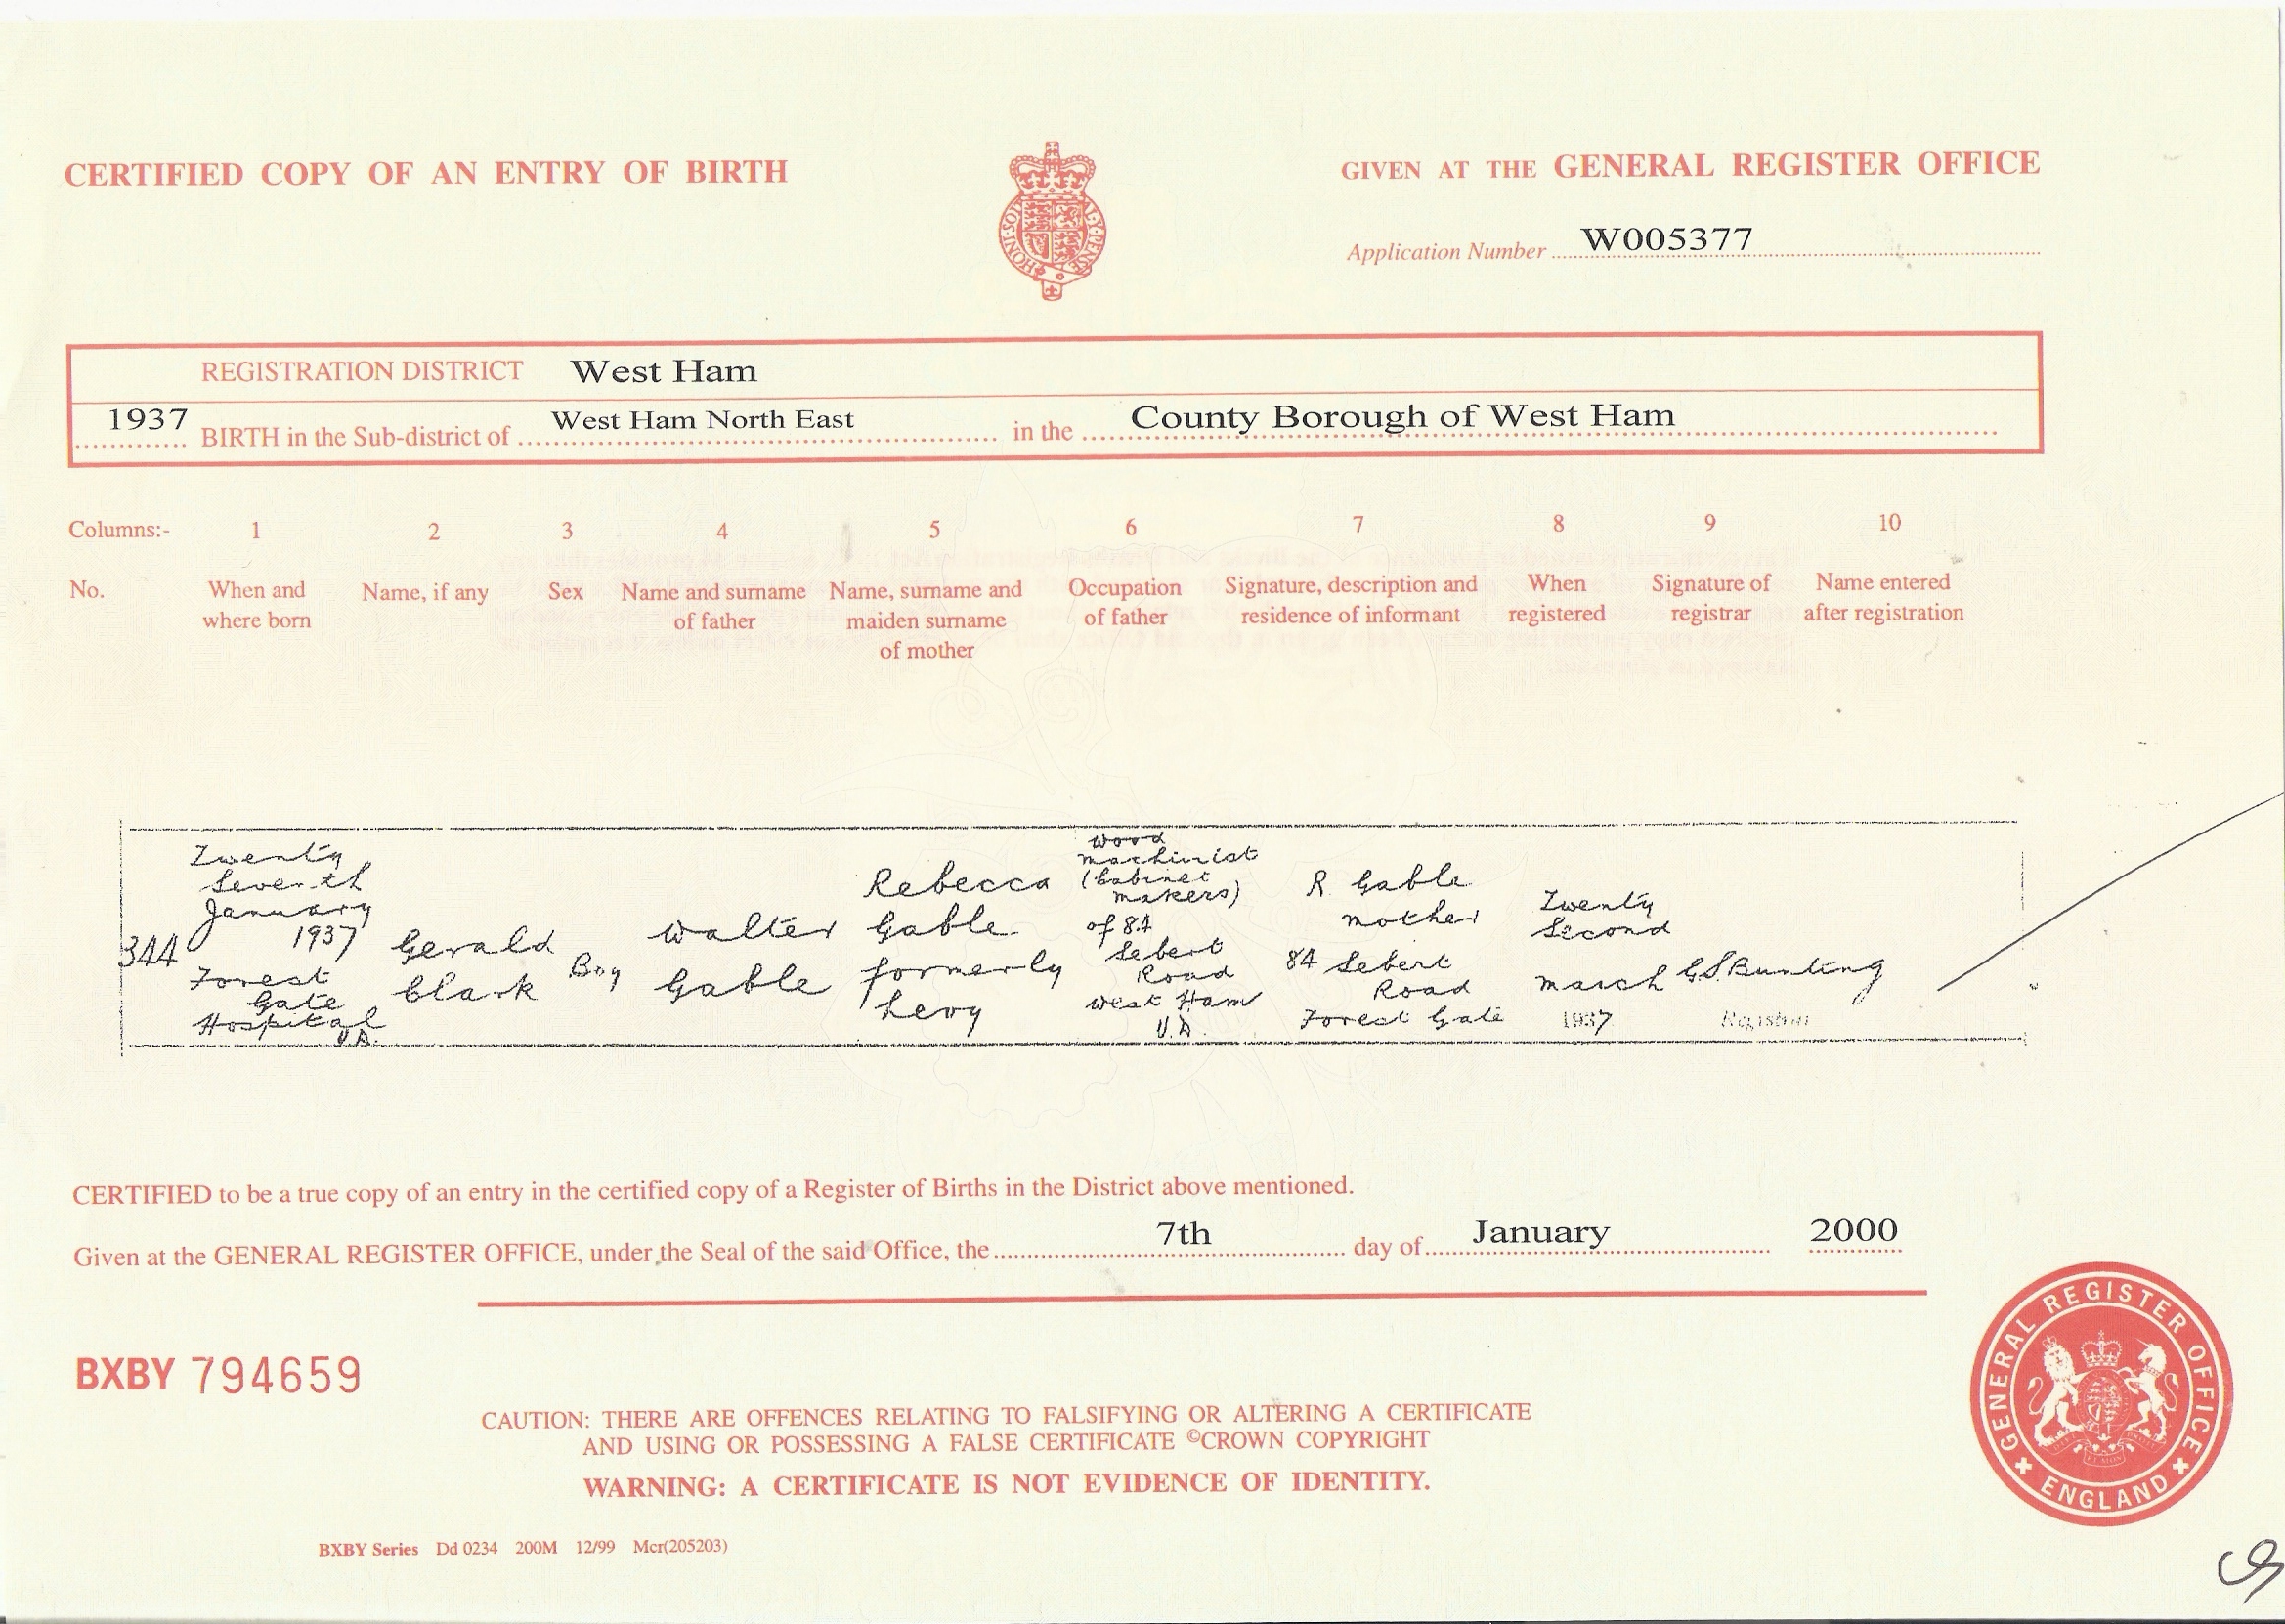 CERTIFIED COPY OF AN ENTRY OF BIRTH
GIVEN AT THE GENERAL REGISTER OFFICE
Application Number W005377
REGISTRATION DISTRICT West Ham
1937 BIRTH in the Sub-district of West Ham North East in the County Borough of West Ham
Columns:- 1 2 3 4 5 6 7 8 9 10
No.
When and
where born
Name, if any
Sex
Name and surname
of father
Name, surname and
maiden surname
of mother
Occupation
of father
Signature, description and
residence of informant
When
registered
Signature of
registrar
Name entered
after registration
344
Twenty
Seventh
January
1937
Forest
Gate
Hospital
U.D.
Gerald
Clark
Boy
Walter
Gable
Rebecca
Gable
formerly
Levy
Wood
machinist
(Cabinet
makers)
of 84
Sebert
Road
West Ham
U.D.
R. Gable
mother
84 Sebert
Road
Forest Gate
Twenty
Second
March
1937
G.S. Bunting
Registrar
CERTIFIED to be a true copy of an entry in the certified copy of a Register of Births in the District above mentioned.
Given at the GENERAL REGISTER OFFICE, under the Seal of the said Office, the 7th day of January 2000
BXBY 794659
CAUTION: THERE ARE OFFENCES RELATING TO FALSIFYING OR ALTERING A CERTIFICATE
AND USING OR POSSESSING A FALSE CERTIFICATE ©CROWN COPYRIGHT
WARNING: A CERTIFICATE IS NOT EVIDENCE OF IDENTITY.
BXBY Series Dd 0234 200M 12/99 Mcr(205203)
GENERAL REGISTER OFFICE
ENGLAND